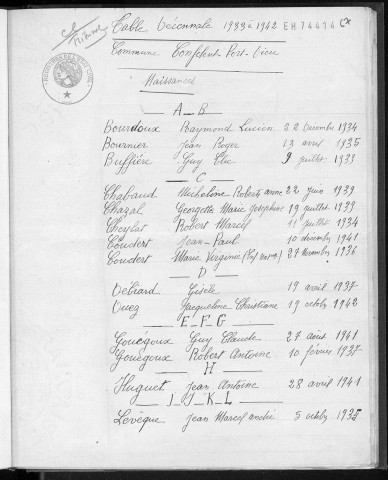 Table Décennale 1933 à 1942 EH 74414
Commune Confolent-Port-Dieu
Naissances
A_B
Bourdoux Raymond Lucien 22 Décembre 1934
Bournier Jean Roger 13 avril 1935
Buffière Guy Elie 9 juillet 1933
C
Chabaud Micheline Roberte anne 22 juin 1939
Chazal Georgette Marie Josephine 19 juillet 1933
Cheylat Robert Marcel 11 juillet 1934
Coudert Jean-Paul 10 décembre 1941
Coudert Marie Virginie 27 novembre 1936
D
Débiard Gisèle 19 avril 1937
Duez Jacqueline Christiane 19 octobre 1942
E_F_G
Gouégoux Guy Claude 27 août 1941
Gouégoux Robert Antoine 10 février 1937
H
Huguet Jean Antoine 28 avril 1941
I_J_K_L
Levêque Jean Marcel andré 5 octobre 1935